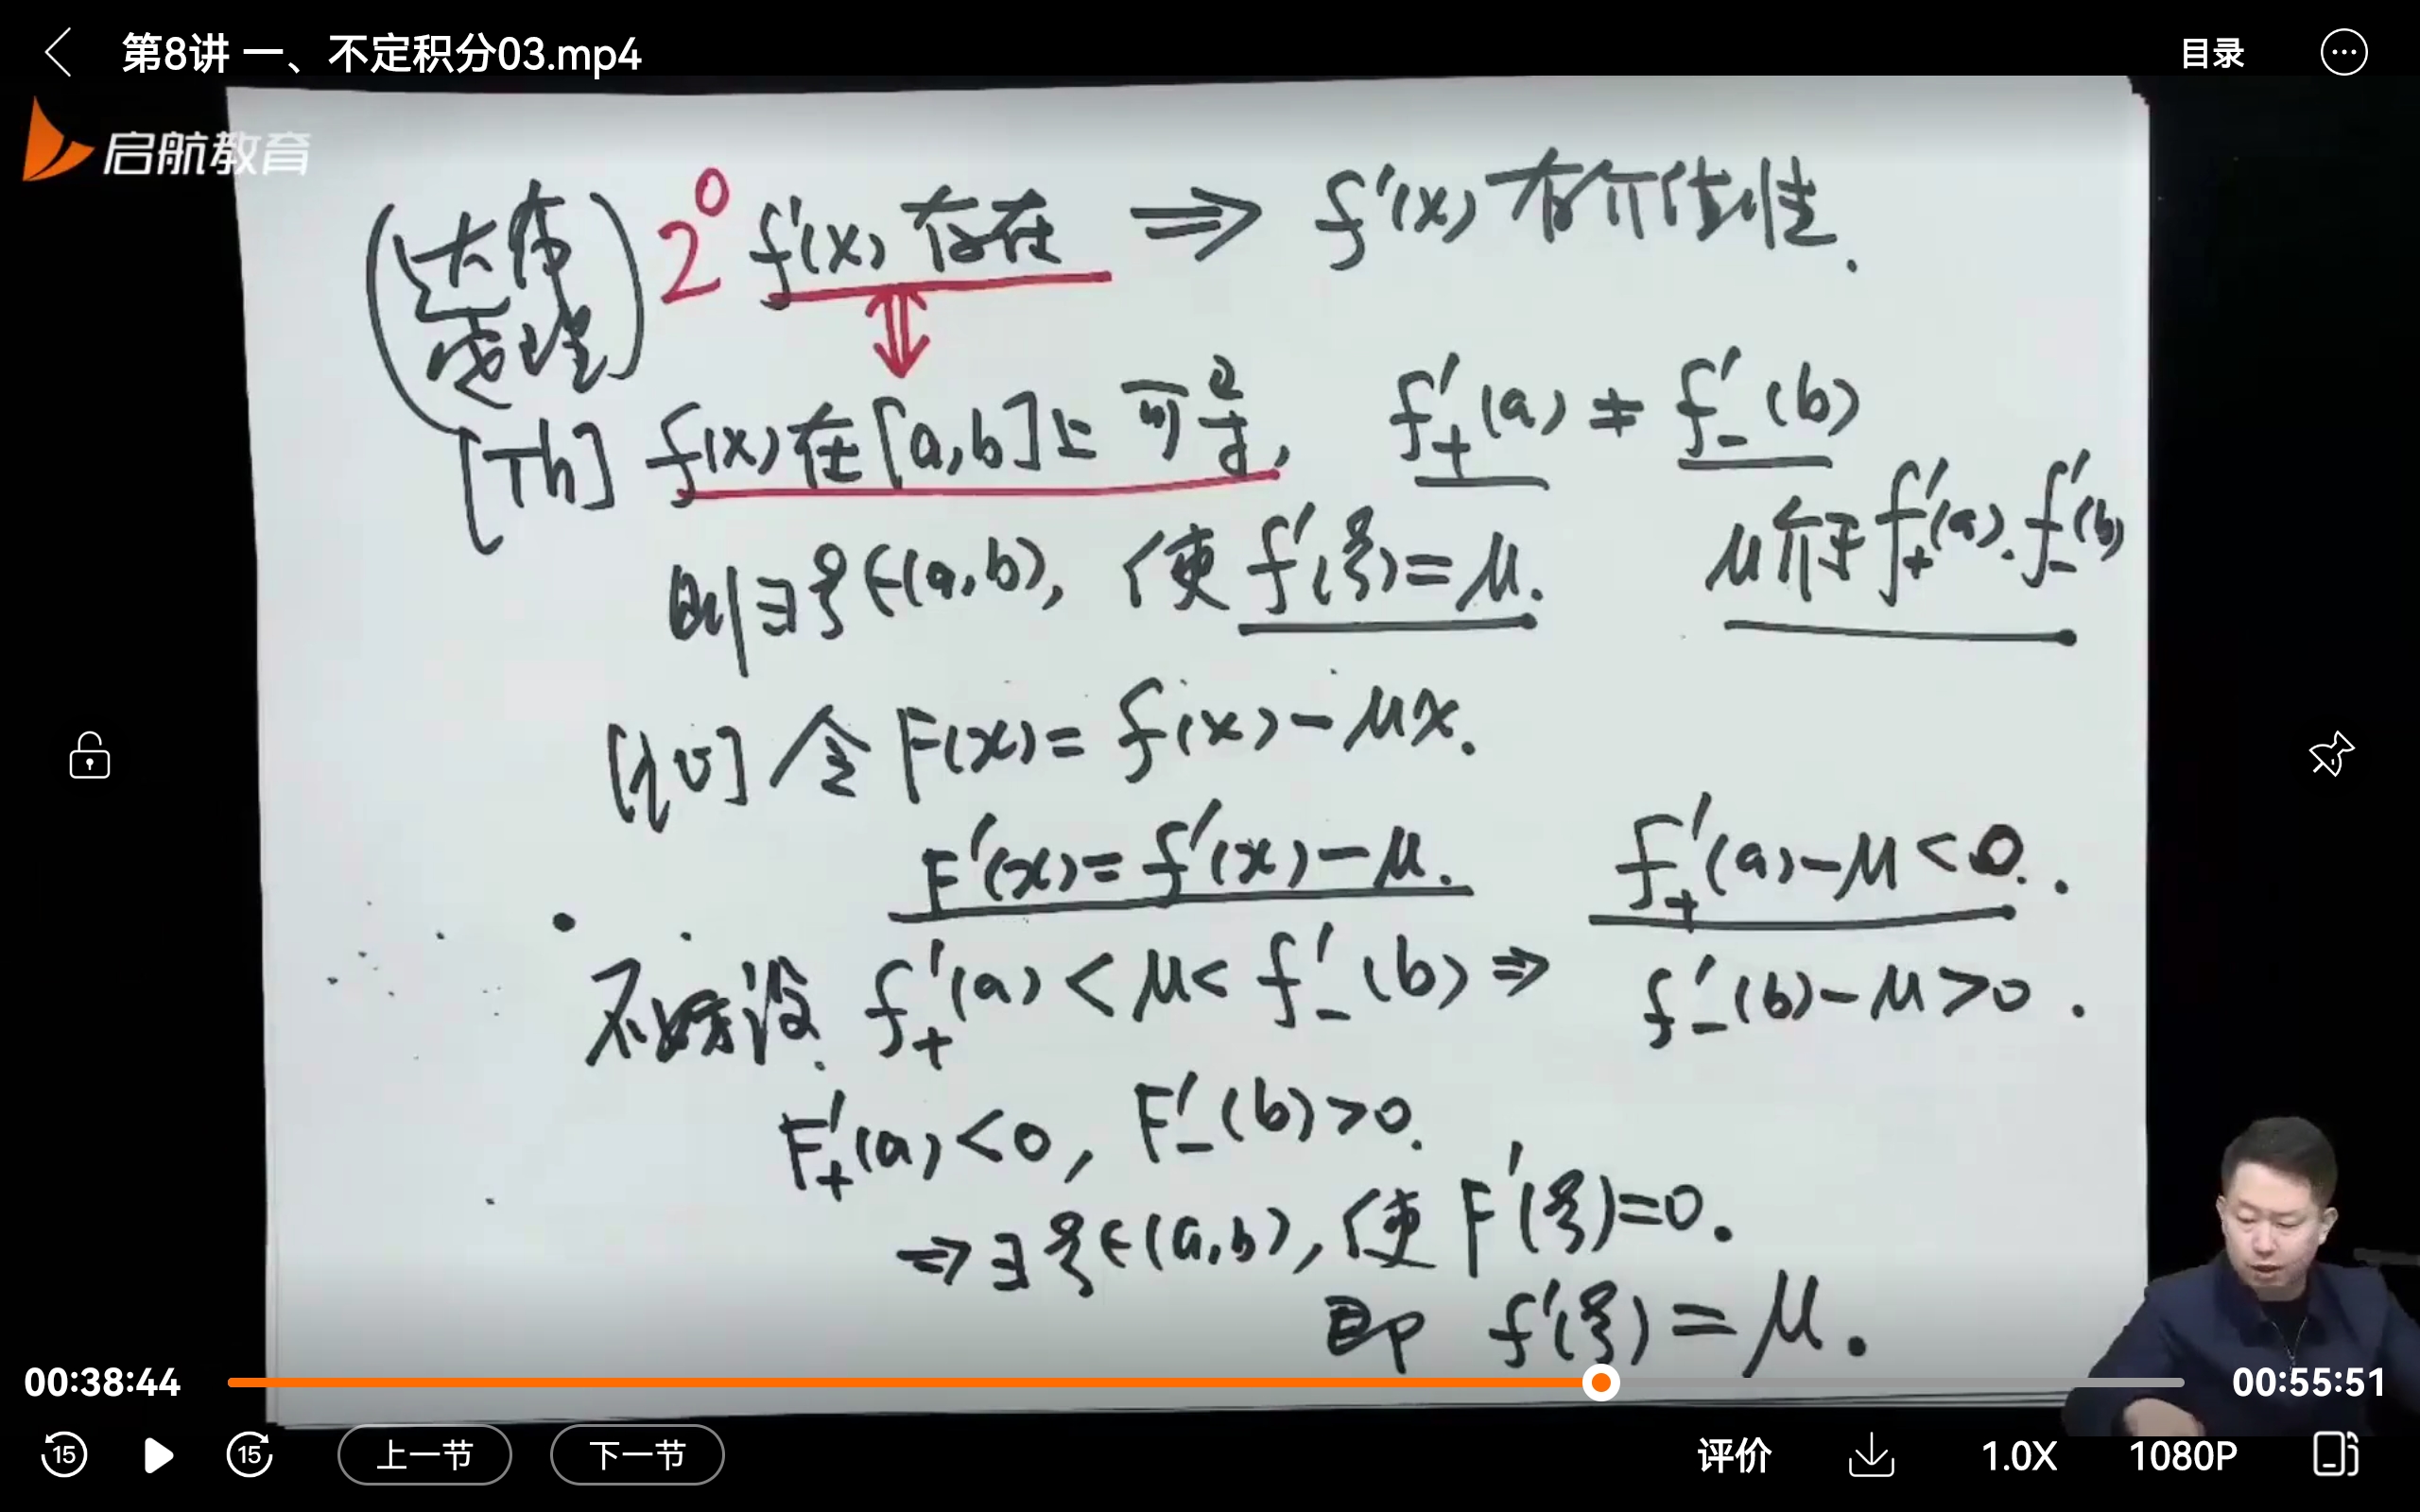 第8讲 一、不定积分03.mp4
目录
启航教育
(达布定理) 2⁰ f'(x) 存在 ⇒ f'(x) 有介值性.
⇕
[Th] f(x) 在 [a,b] 上可导, f'₊(a) ≠ f'₋(b)
μ介于 f'₊(a). f'₋(b)
则∃ξ∈(a,b), 使 f'(ξ)=μ.
[证] 令 F(x)= f(x)-μx.
F'(x)= f'(x)-μ.
f'₊(a)-μ<0.
不妨设. f'₊(a)<μ< f'₋(b) ⇒ f'₋(b)-μ>0.
F'₊(a)<0, F'₋(b)>0.
⇒∃ξ∈(a,b), 使 F'(ξ)=0.
即 f'(ξ)=μ.
00:38:44
00:55:51
15
15
上一节
下一节
评价
1.0X
1080P